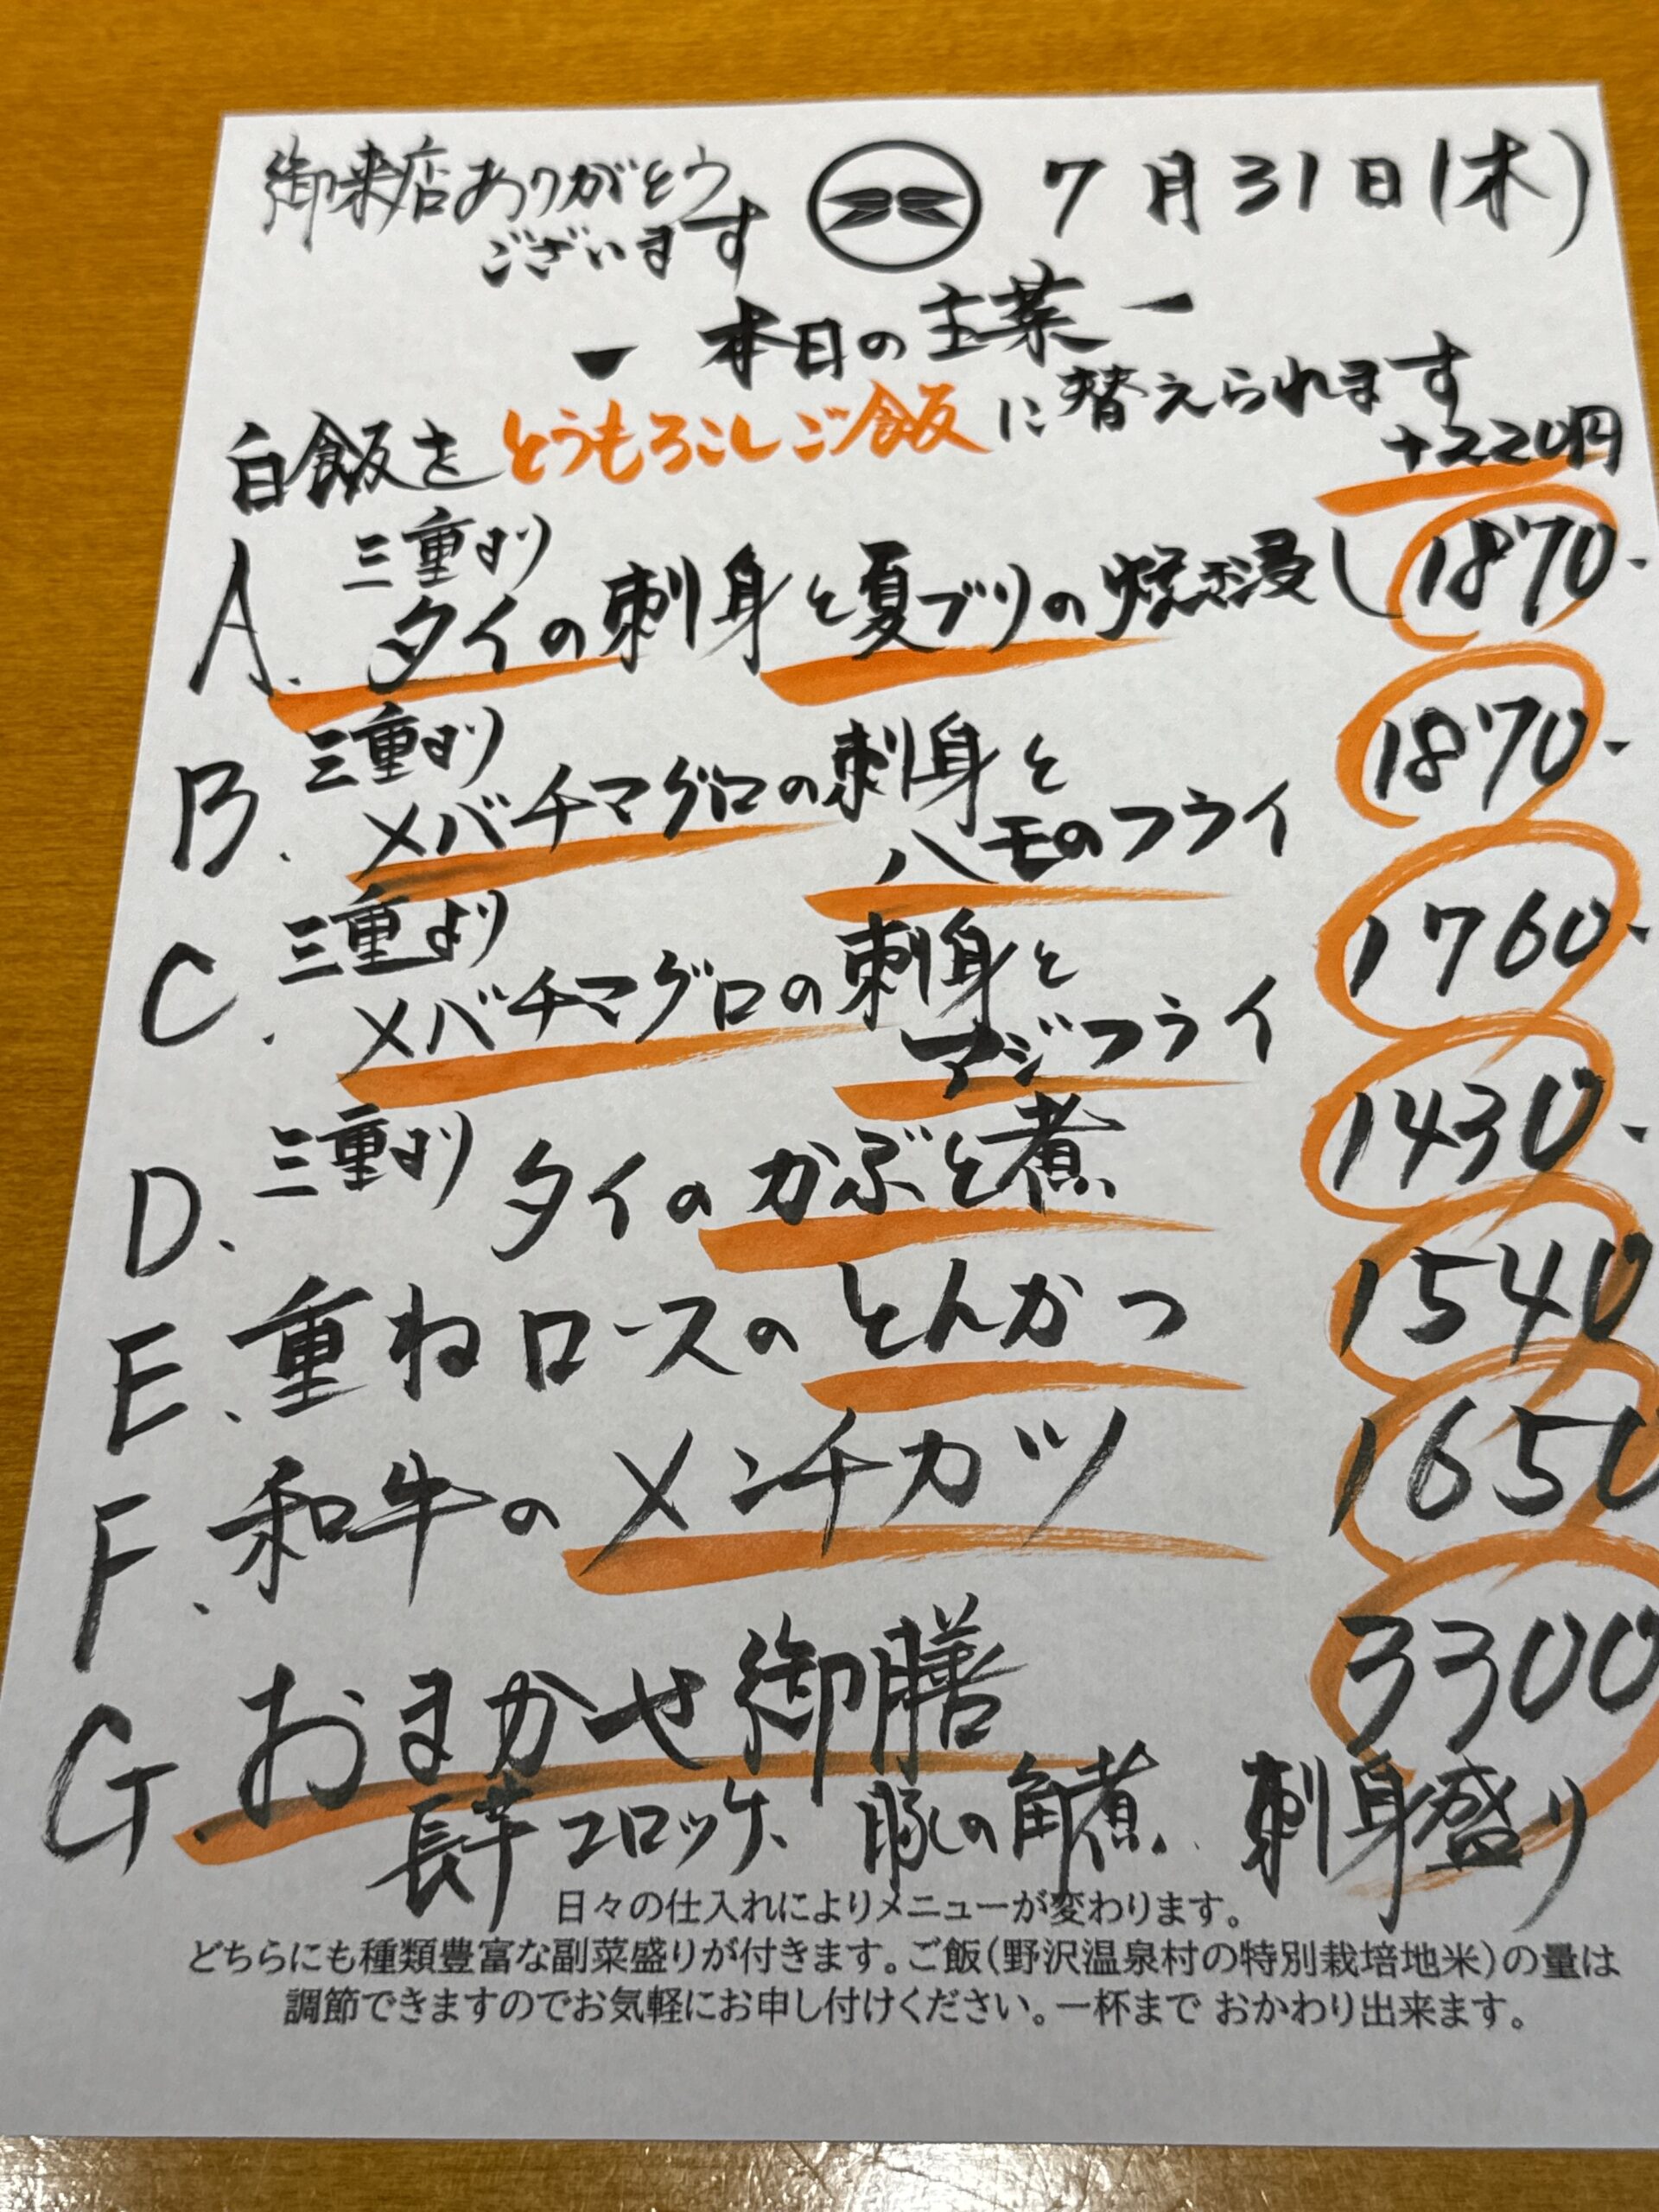 御来店ありがとう
ございます
7月31日(木)
ー 本日の主菜 ー
白飯をとうもろこしご飯に替えられます
+220円
三重より
A. タイの刺身と夏ブリの焼き浸し 1870-
三重より
B. メバチマグロの刺身と
ハモのフライ 1870-
三重より
C. メバチマグロの刺身と
アジフライ 1760-
D. 三重より タイのかぶと煮 1430-
E. 重ねロースのとんかつ 1540
F. 和牛のメンチカツ 1650
G. おまかせ御膳 3300
長芋コロッケ、豚の角煮、刺身盛り
日々の仕入れによりメニューが変わります。
どちらにも種類豊富な副菜盛りが付きます。ご飯(野沢温泉村の特別栽培地米)の量は
調節できますのでお気軽にお申し付けください。一杯まで おかわり出来ます。